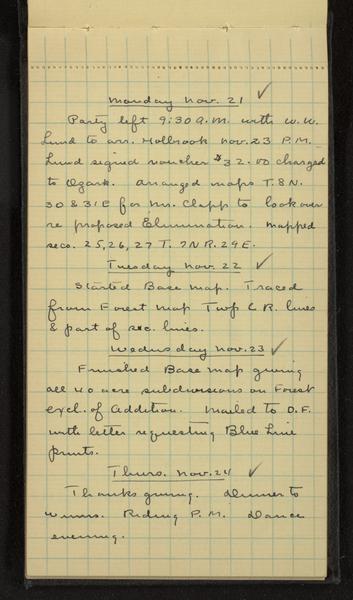 Monday Nov. 21 ✓
Party left 9:30 A.M. with W.W.
Lund to arr. Holbrook Nov. 23 P.M.
Lund signed voucher $32.00 charged
to Ozark. Arranged maps T.8N.
30 & 31E for Mr. Clapp to look over
re proposed Elimination. Mapped
secs. 25, 26, 27 T. 7N R. 29E.
Tuesday Nov. 22 ✓
Started Base Map. Traced
from Forest Map Twp & R. lines
& part of sec. lines.
Wednesday Nov. 23 ✓
Finished Base Map giving
all 40 acre subdivisions on Forest
excl. of Addition. Mailed to D.F.
with letter requesting Blue Line
prints.
Thurs. Nov. 24 ✓
Thanksgiving. Dinner to
Winns. Riding P.M. Dance
evening.